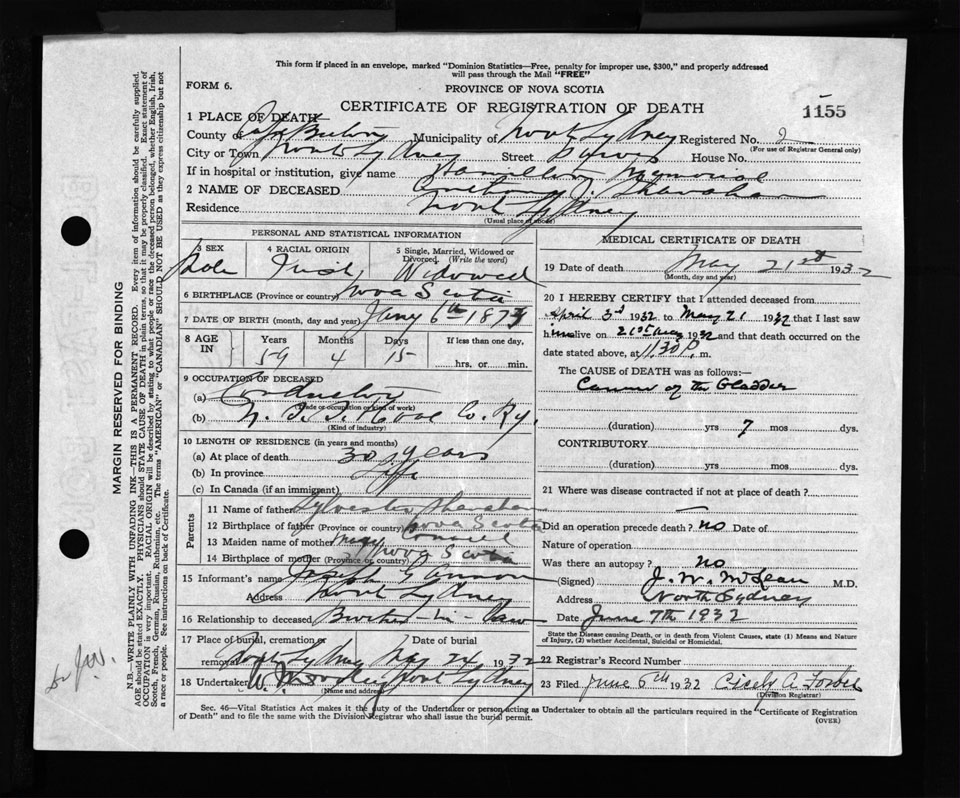 This form if placed in an envelope, marked "Dominion Statistics—Free, penalty for improper use, $300," and properly addressed
will pass through the Mail "FREE"
FORM 6.
PROVINCE OF NOVA SCOTIA
CERTIFICATE OF REGISTRATION OF DEATH
1155
1 PLACE OF DEATH
County of Cape Breton Municipality of North Sydney Registered No. 2
(For use of Registrar General only)
City or Town North Sydney Street House No.
If in hospital or institution, give name Hamilton Memorial
2 NAME OF DECEASED J. Shanahan
Residence North Sydney
(Usual place of abode)
PERSONAL AND STATISTICAL INFORMATION
3 SEX
Male
4 RACIAL ORIGIN
Irish
5 Single, Married, Widowed or Divorced. (Write the word)
Widowed
6 BIRTHPLACE (Province or country) Nova Scotia
7 DATE OF BIRTH (month, day and year) Jany 6th 1873
8 AGE IN
Years Months Days If less than one day,
59 4 15 hrs. or min.
9 OCCUPATION OF DECEASED
(a) Conductor
(Trade or occupation or kind of work)
(b) N. S. S. & Coal Co. Ry.
(Kind of industry)
10 LENGTH OF RESIDENCE (in years and months)
(a) At place of death 30 years
(b) In province Life
(c) In Canada (if an immigrant)
Parents
11 Name of father Sylvester Shanahan
12 Birthplace of father (Province or country) Nova Scotia
13 Maiden name of mother Mary
14 Birthplace of mother (Province or country) Nova Scotia
15 Informant's name Joseph Gannon
Address North Sydney
16 Relationship to deceased Brother-in-Law
17 Place of burial, cremation or removal
North Sydney
Date of burial
May 24 1932
18 Undertaker North Sydney
(Name and address)
MEDICAL CERTIFICATE OF DEATH
19 Date of death May 21st 1932
(Month, day and year)
20 I HEREBY CERTIFY that I attended deceased from
April 3d 1932 to May 21 1932 that I last saw
him alive on 21st May 1932 and that death occurred on the
date stated above, at 1.30 P. m.
The CAUSE of DEATH was as follows:—
Cancer of the Bladder
(duration) yrs 7 mos dys.
CONTRIBUTORY
(duration) yrs mos dys.
21 Where was disease contracted if not at place of death?
Did an operation precede death? no Date of
Nature of operation
Was there an autopsy? no
(Signed) J. W. McLean M.D.
Address North Sydney
Date June 7th 1932
State the Disease causing Death, or in death from Violent Causes, state (1) Means and Nature
of Injury, (2) whether Accidental, Suicidal or Homicidal.
22 Registrar's Record Number
23 Filed June 6th 1932 Cicely A. Forbes
(Division Registrar)
Sec. 46—Vital Statistics Act makes it the duty of the Undertaker or person acting as Undertaker to obtain all the particulars required in the "Certificate of Registration
of Death" and to file the same with the Division Registrar who shall issue the burial permit. (OVER)
MARGIN RESERVED FOR BINDING
N.B.—WRITE PLAINLY WITH UNFADING INK—THIS IS A PERMANENT RECORD. Every item of information should be carefully supplied.
AGE should be stated EXACTLY. PHYSICIANS should STATE CAUSE OF DEATH in plain terms, so that it may be properly classified. Exact statement of
OCCUPATION is very important. RACIAL ORIGIN will be described by stating to what people or race the deceased person belonged, whether English, Irish,
Scotch, French, German, Russian, Ruthenian, etc. The terms "AMERICAN" or "CANADIAN" SHOULD NOT BE USED as they express citizenship but not
a race or people. See instructions on back of Certificate.